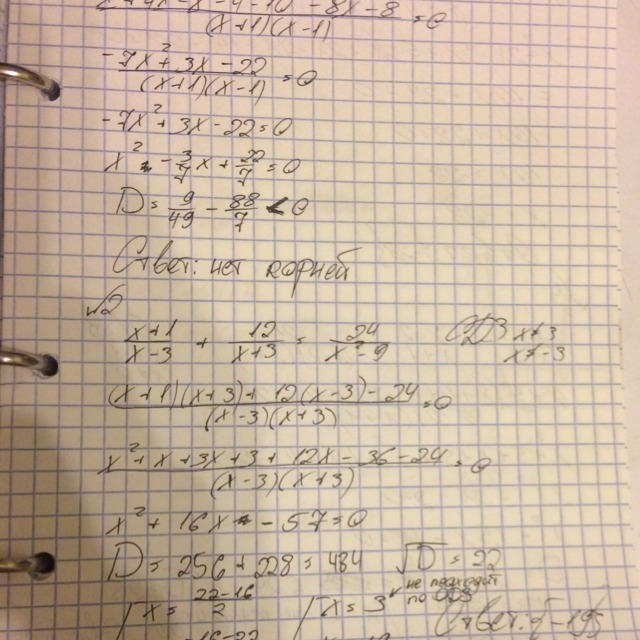 +4x-x-4-10-8x-8 / (x+1)(x-1) =0
-7x²+3x-22 / (x+1)(x-1) =0
-7x²+3x-22=0
x² - 3/7 x + 22/7 =0
D= 9/49 - 88/7 <0
Ответ: нет корней
№2
x+1 / x-3 + 12 / x+3 = 24 / x²-9 ОДЗ x≠3
x≠-3
(x+1)(x+3)+12(x-3)-24 / (x-3)(x+3) =0
x²+x+3x+3+12x-36-24 / (x-3)(x+3) =0
x²+16x-57=0
D= 256+228=484 √D=22
x= 22-16 / 2 x=3 не подходит
по ОДЗ Ответ: -19
-16-22